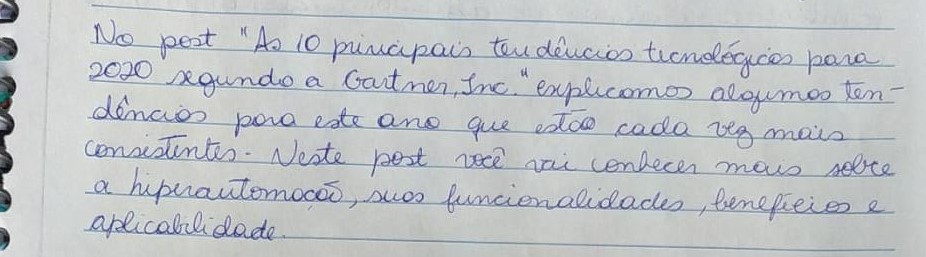 No post "As 10 principais tendências tecnológicas para
2020 segundo a Gartner, Inc." explicamos algumas ten-
dências para este ano que estão cada vez mais
consistentes. Neste post você vai conhecer mais sobre
a hiperautomação, suas funcionalidades, benefícios e
aplicabilidade.